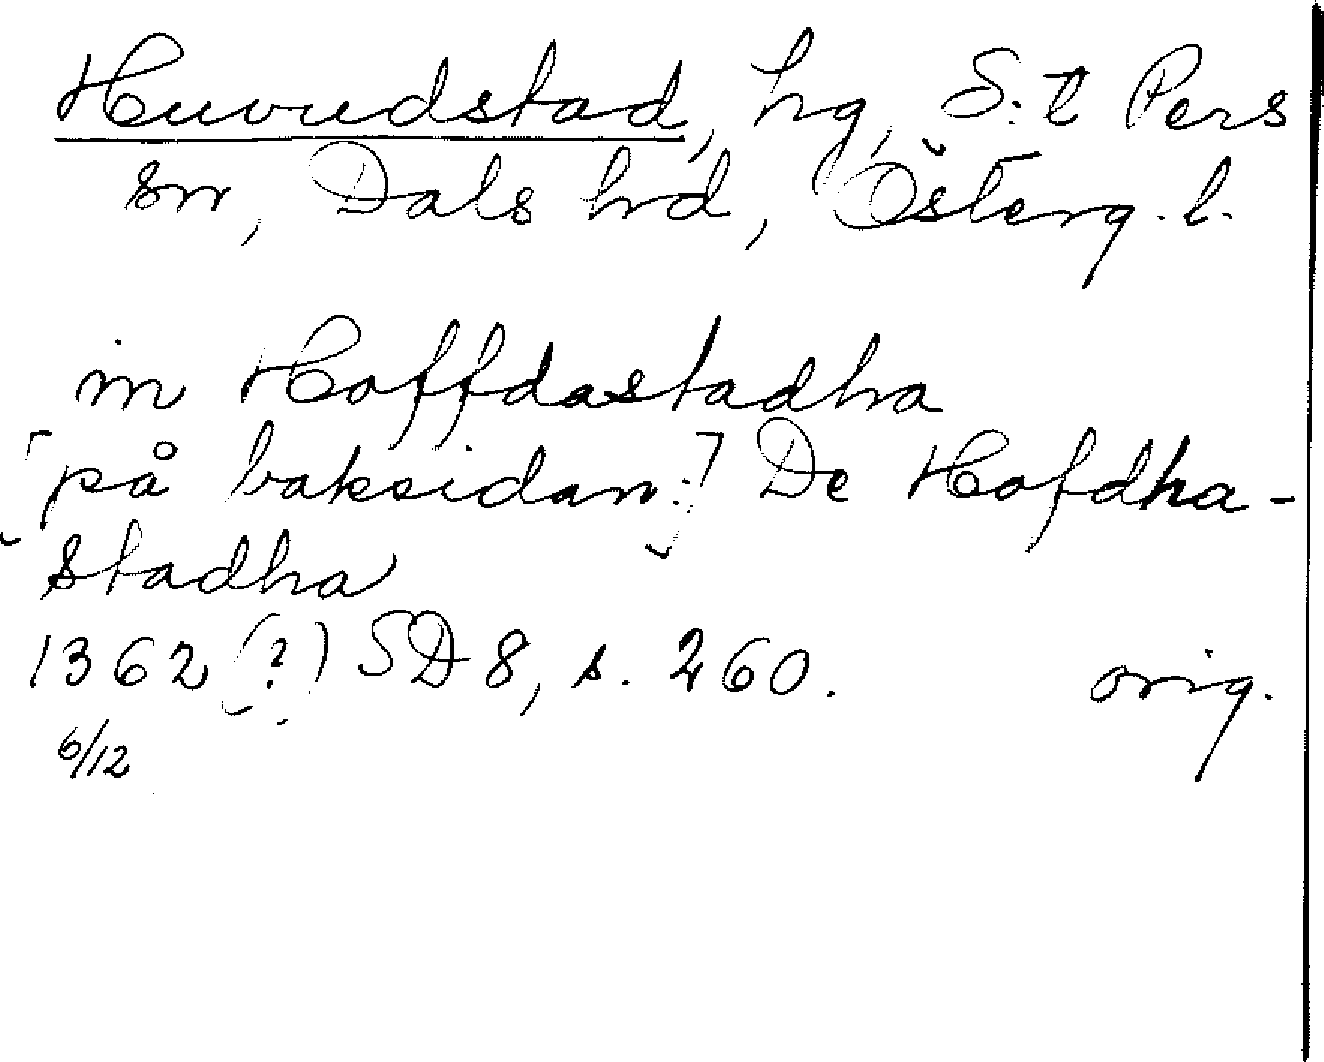 Huvudstad, hg, S:t Pers
sn, Dals hd, Österg. l.
in Hoffdastadha
[på baksidan:] De Hofdha-
stadha
1362 (?) SD 8, s. 260. orig.
6/12